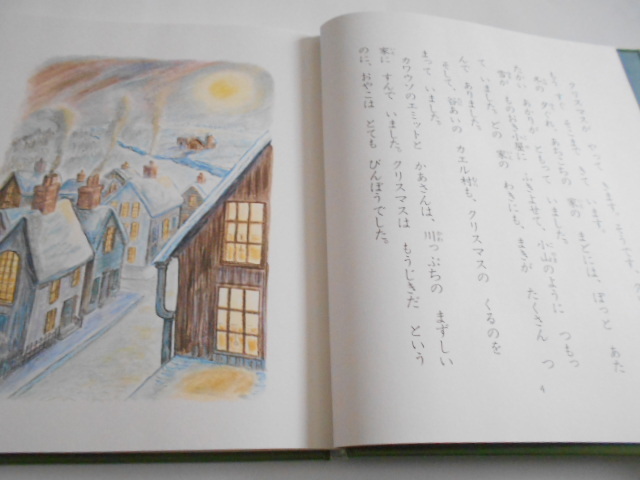 クリスマスが やって きます。そうです、ク
もう すぐ そこまで きて います。
冬の 夕ぐれ、あちこちの 家の まどには、ぽっと あた
たかい あかりが ともって いました。
雪が ものおき小屋に ふきよせて、小山のように つもっ
て いました。どの 家の わきにも、まきが たくさん つ
んで ありました。
そして、谷あいの カエル村も、クリスマスの くるのを
まって いました。
カワウソのエミットと かあさんは、川っぷちの まずしい
家に すんで いました。クリスマスは もうじきだ という
のに、おやこは とても びんぼうでした。
4